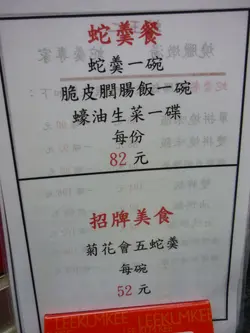 蛇羹餐
蛇羹一碗
脆皮膶腸飯一碗
蠔油生菜一碟
每份
82 元
招牌美食
菊花會五蛇羹
每碗
52 元
LEEKUMKEE LEEKUMKEE